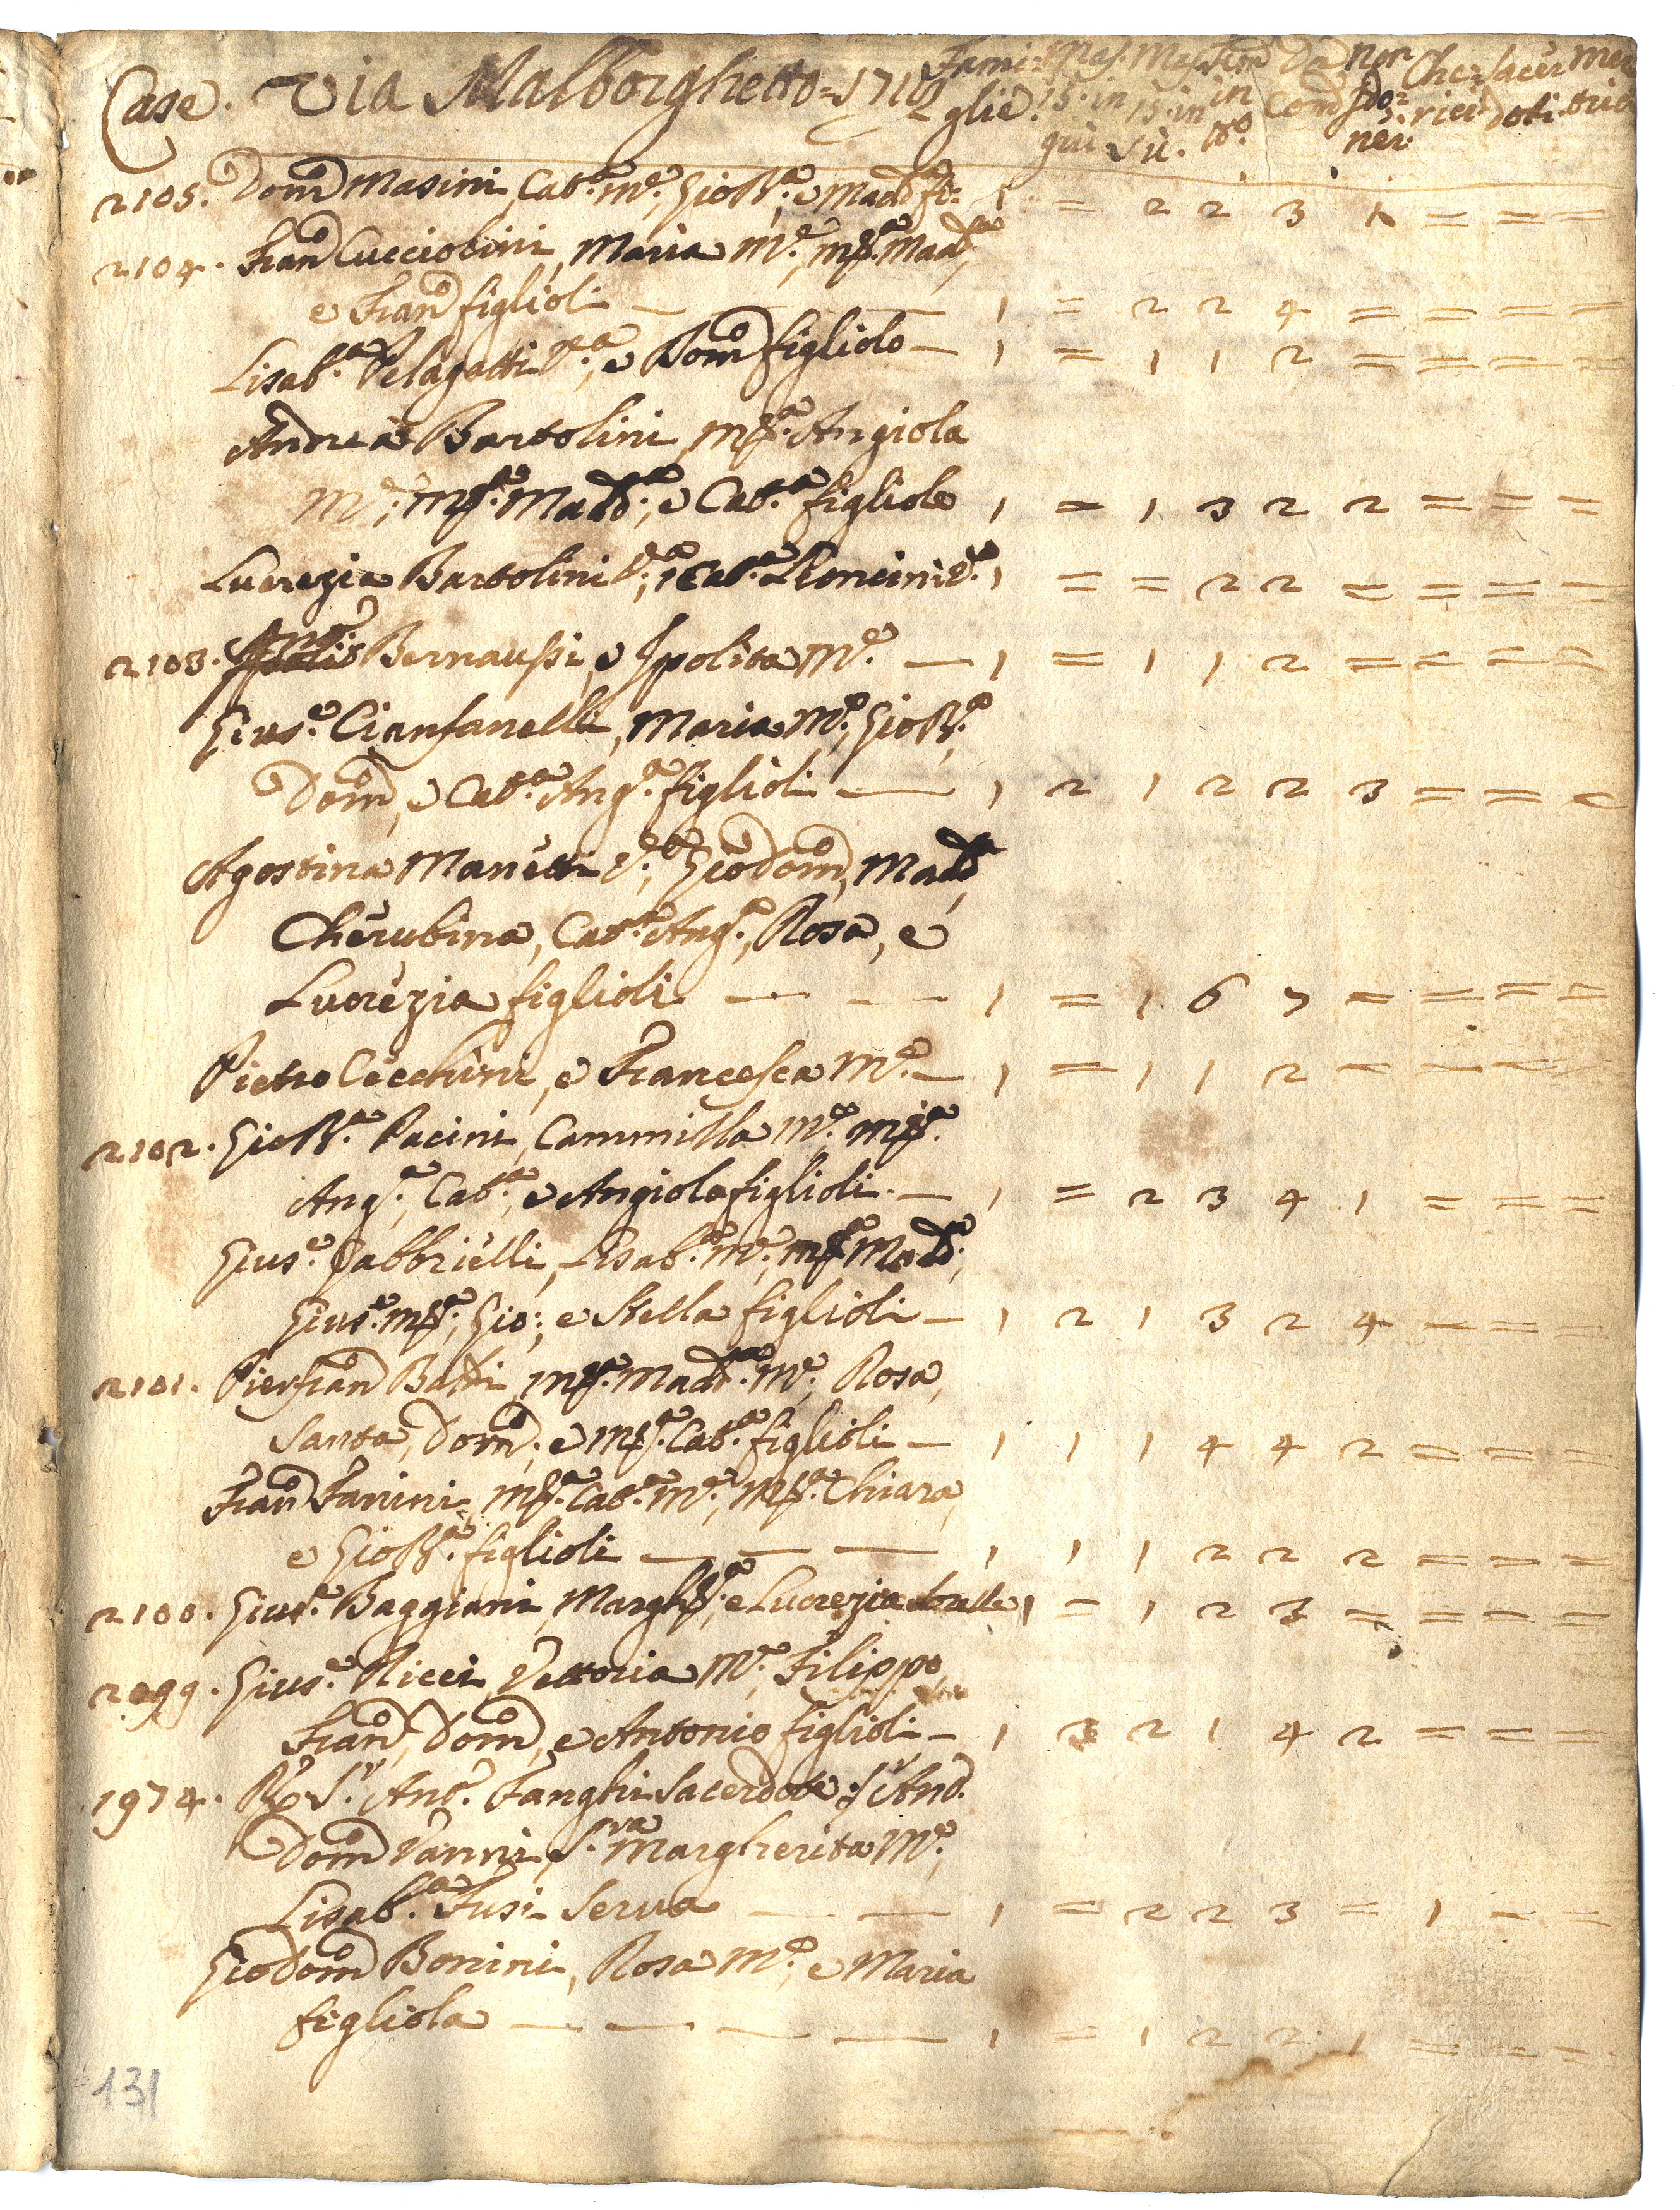 Case. Via Malborghetto = 1710 Fami= Mas. Mas. Fem. Da non Che= Sacer men
glie. 15. in 15. in in Com Ido= rici doti trio
giù sù. tto. nei.
2105. Domco Masini, Cat.a M.e, Gio:B.a, e Madda fi= 1 = 2 2 3 1 = = =
2104. Franco Cucciolini, Maria M.e, M.a Madda,
e Franco figlioli — 1 = 2 2 4 = = = =
Lisab.a Pelagatti V.a, e Domco figliolo — 1 = 1 1 2 = = = =
Andrea Bartolini, M.a Angiola
M.e, M.a Madd.a, e Cat.a figliole 1 = 1 3 2 2 = = =
Lucrezia Bartolini V.a, Cat.a V.a 1 = = 2 2 = = = =
2103. Anto Bernaussi, e Ipolita M.e — 1 = 1 1 2 = = = =
Gius.e Cianfanelli, Maria M.e, Gio:B.a,
Domco, e Cat.a Ang.a figlioli — 1 2 1 2 2 3 = = =
Agostina Manetti V.a, Gio:Domco, Madda,
Cherubina, Cat.a Ang.a, Rosa, e
Lucrezia figlioli — - - 1 = 1 6 7 = = = =
Pietro Cecchini, e Francesca M.e — 1 = 1 1 2 = = = =
2102. Gio:B.a Pacini, Cammilla M.e M.a
Ang.a, Cat.a, e Angiola figlioli. — 1 = 2 3 4 1 = = =
Gius.e Gabbrielli, Lisab.a M.e, M.a Madd.a,
Gius.e M.a, Gio:, e Stella figlioli — 1 2 1 3 2 4 = = =
2101. Pierfranco Baldi, M.a Madd.a M.e, Rosa,
Santa, Domca, e M.a Cat.a figlioli — 1 1 1 4 4 2 = = =
Franco Fanini, M.a Cat.a M.e, M.a Chiara,
e Gio:B.a figlioli — — — 1 1 1 2 2 2 = = =
2100. Gius.e Baggiani, Margh.ta, e Lucrezia Sorelle 1 = 1 2 3 = = = =
2099. Gius.e Ricci, Vettoria M.e, Filippo,
Franco, Domco, e Antonio figlioli — 1 3 2 1 4 2 = = =
1974. R. S.r Anto. Fanghi Sacerdote, S.r Anto.
Domco Vanni, S.ra Margherita M.e,
Lisab.a Fusi Serva — — 1 = 2 2 3 = 1 = =
Gio:Domco Bonini, Rosa M.e, e Maria
figliola — — — — 1 = 1 2 2 1 = = =
131